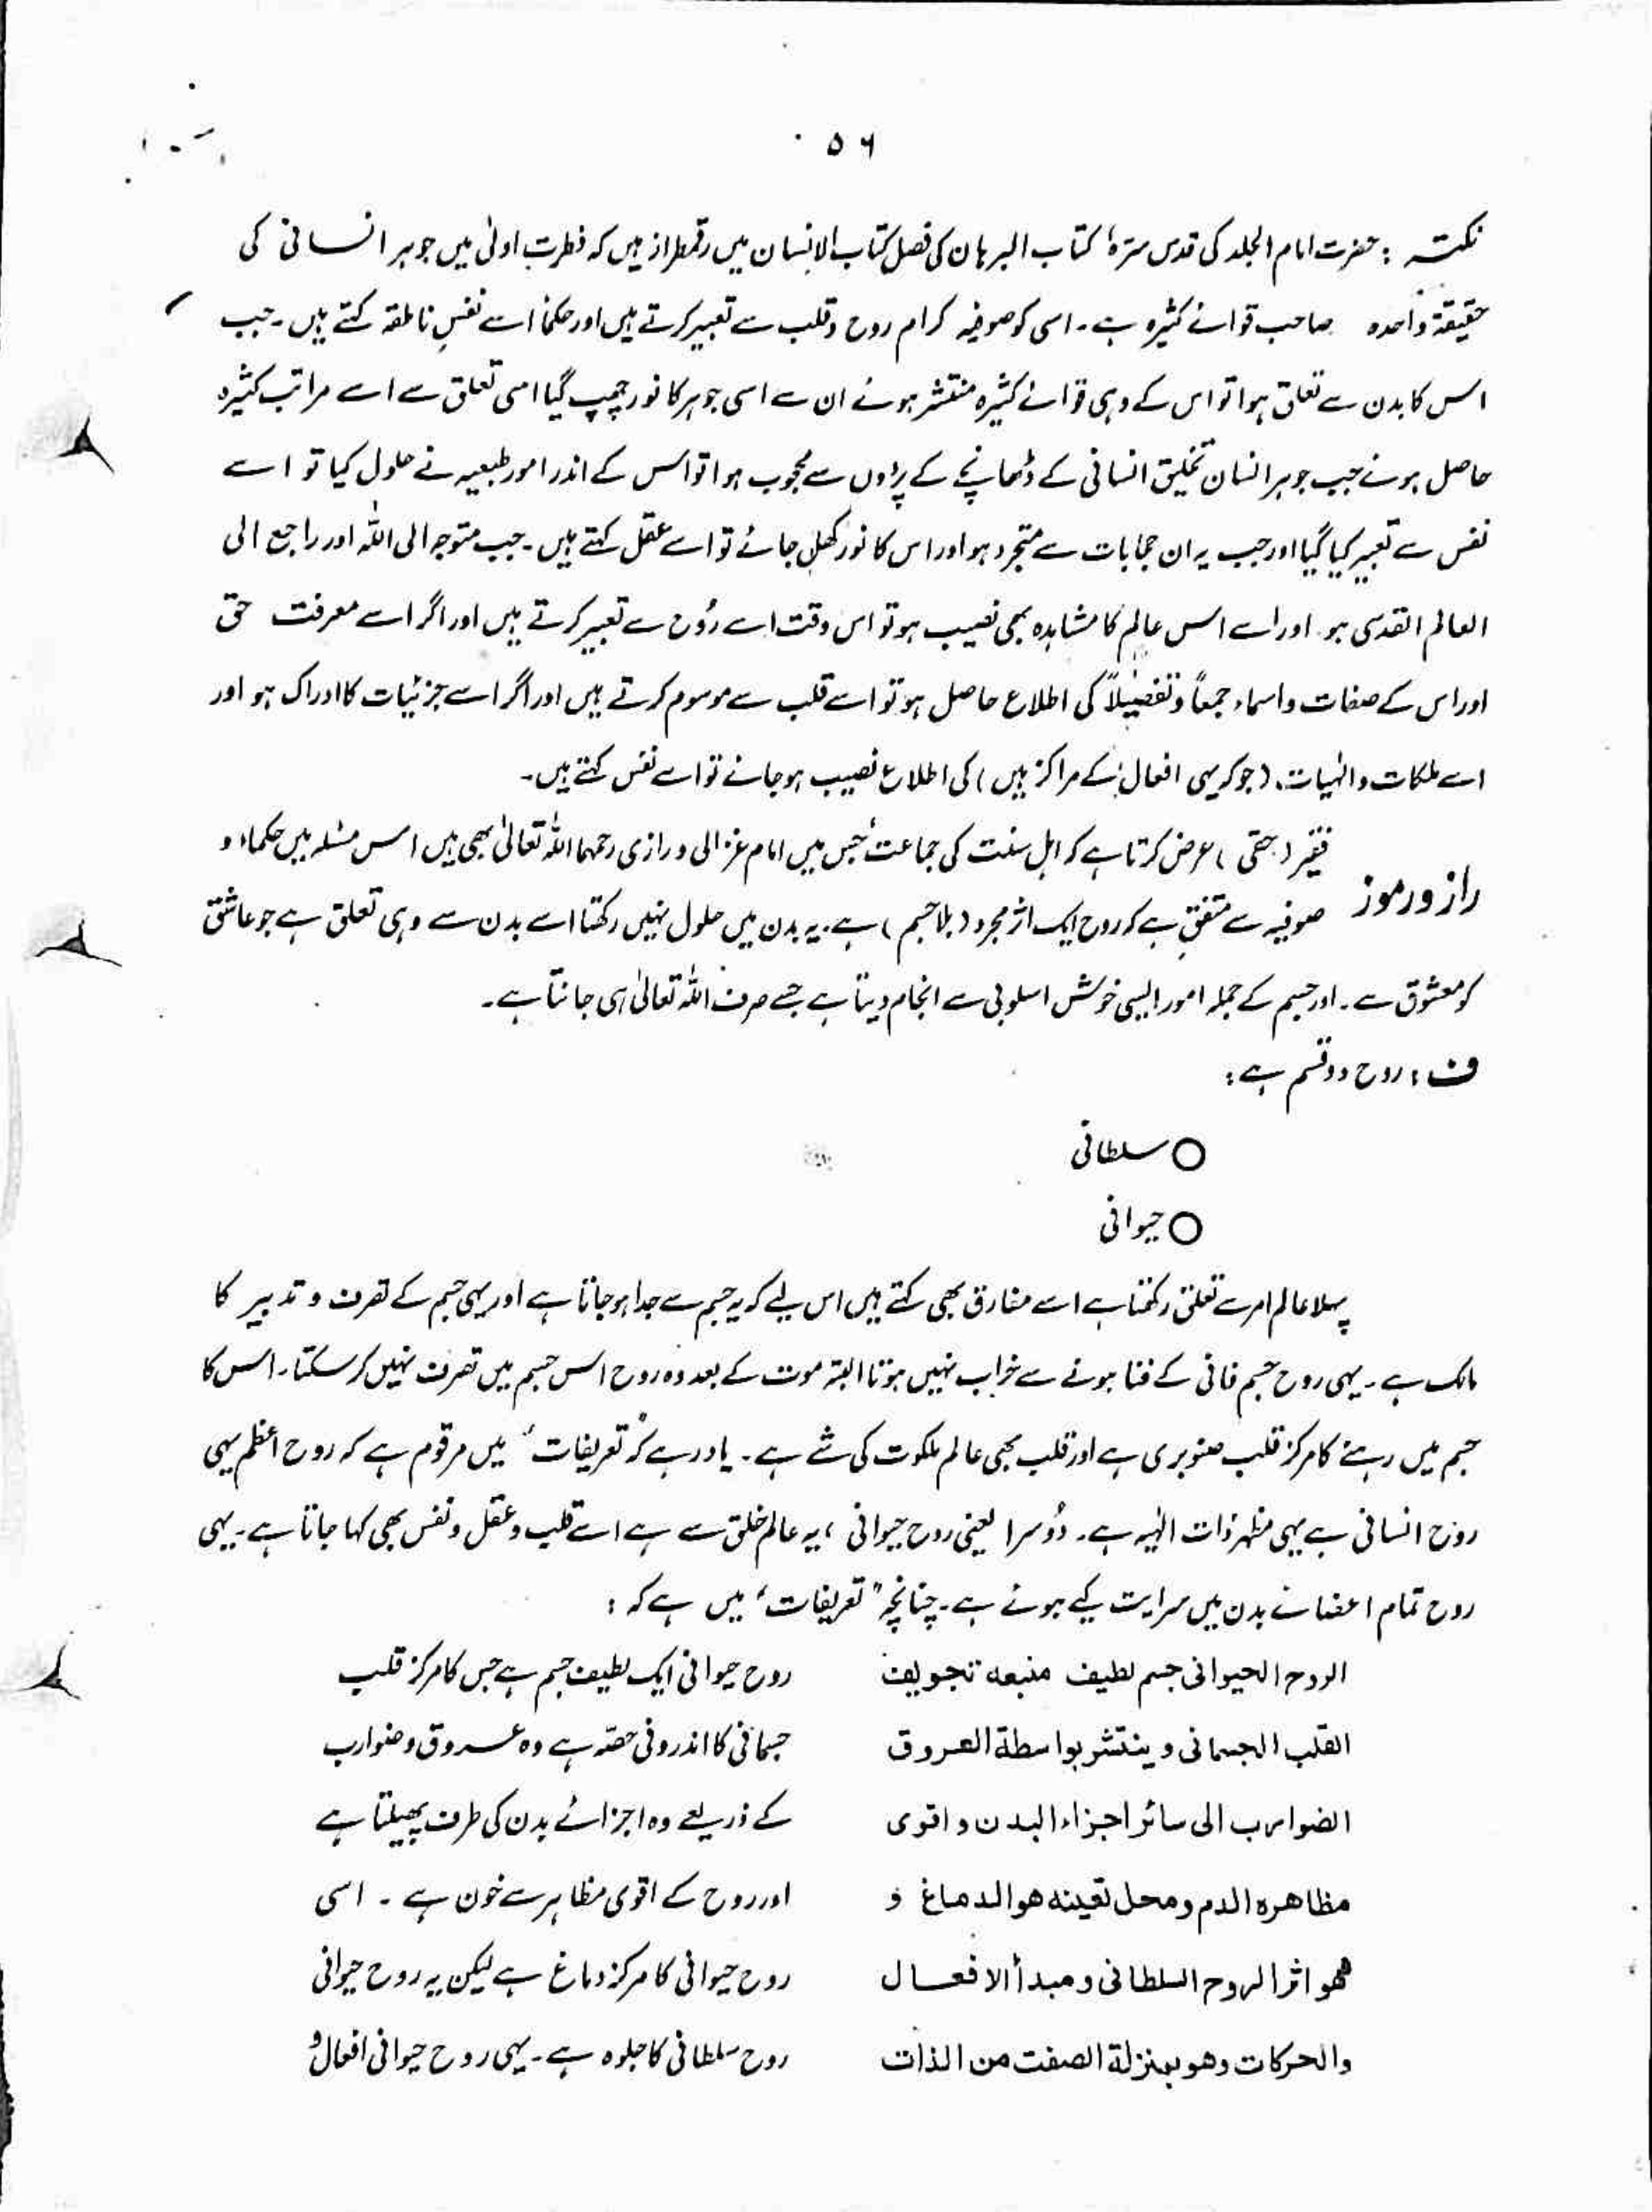 ۵۶
نکتہ : حضرت امام الجلدکی قدس سرّہٗ کتاب البرہان کی فصل کتاب الانسان میں رقمطراز ہیں کہ فطرت اولیٰ میں جوہر انسانی کی
حقیقۃ واحدہ صاحب قوائے کثیرہ ہے۔ اسی کو صوفیہ کرام روح و قلب سے تعبیر کرتے ہیں اور حکماٗ اسے نفسِ ناطقہ کہتے ہیں۔ جب
اس کا بدن سے تعلق ہوا تو اس کے وہی قوائے کثیرہ منتشر ہوئے ان سے اسی جوہر کا نور چھپ گیا اسی تعلق سے اسے مراتب کثیرہ
حاصل ہوئے جب جوہر انسان تخلیق انسانی کے ڈھانچے کے پردوں سے محجوب ہوا تو اس کے اندر امور طبعیہ نے حلول کیا تو اسے
نفس سے تعبیر کیا گیا اور جب یہ ان حجابات سے متجرد ہو اور اس کا نور کھل جائے تو اسے عقل کہتے ہیں۔ جب متوجہ الی اللہ اور راجع الی
العالم القدسی ہو اور اسے اس عالم کا مشاہدہ بھی نصیب ہو تو اس وقت اسے رُوح سے تعبیر کرتے ہیں اور اگر اسے معرفت حق
اور اس کے صفات و اسماء جمعاً و تفصیلاً کی اطلاع حاصل ہو تو اسے قلب سے موسوم کرتے ہیں اور اگر اسے جزئیات کا ادراک ہو اور
اسے ملکات و الہٰیات (جو کہ یہی افعال کے مراکز ہیں) کی اطلاع نصیب ہو جائے تو اسے نفس کہتے ہیں۔
راز و رموز فقیر (حقی) عرض کرتا ہے کہ اہل سنت کی جماعت جس میں امام غزالی و رازی رحمہما اللہ تعالیٰ بھی ہیں اس مسئلہ میں حکماء و
صوفیہ سے متفق ہے کہ روح ایک اثر مجرد (بلا جسم) ہے۔ یہ بدن میں حلول نہیں رکھتا اسے بدن سے وہی تعلق ہے جو عاشق
کو معشوق سے۔ اور جسم کے جملہ امور ایسی خوش اسلوبی سے انجام دیتا ہے جسے صرف اللہ تعالیٰ ہی جانتا ہے۔
ف : روح دو قسم ہے :
○ سلطانی
○ حیوانی
پہلا عالم امر سے تعلق رکھتا ہے اسے مفارق بھی کہتے ہیں اس لیے کہ یہ جسم سے جدا ہو جاتا ہے اور یہی جسم کے تصرف و تدبیر کا
مالک ہے۔ یہی روح جسم فانی کے فنا ہونے سے خراب نہیں ہوتا البتہ موت کے بعد وہ روح اس جسم میں تصرف نہیں کر سکتا۔ اس کا
جسم میں رہنے کا مرکز قلب صنوبری ہے اور قلب بھی عالم ملکوت کی شے ہے۔ یاد رہے کہ "تعریفات" میں مرقوم ہے کہ روح اعظم یہی
روح انسانی ہے یہی مظہر ذات الٰہیہ ہے۔ دُوسرا یعنی روح حیوانی ، یہ عالم خلق سے ہے اسے قلب و عقل و نفس بھی کہا جاتا ہے۔ یہی
روح تمام اعضائے بدن میں سرایت کیے ہوئے ہے۔ چنانچہ "تعریفات" میں ہے کہ :
الروح الحیوانی جسم لطیف منبعہ تجویف
القلب الجسمانی و ینتشر بواسطۃ العروق
الضوارب الی سائر اجزاء البدن و اقوی
مظاھرہ الدم و محل تعینہ ھو الدماغ و
فھو اثر الروح السلطانی و مبدأ الافعال
والحرکات وھو بمنزلۃ الصفت من الذات
روح حیوانی ایک لطیف جسم ہے جس کا مرکز قلب
جسمانی کا اندرونی حصّہ ہے وہ عروق و ضوارب
کے ذریعے وہ اجزائے بدن کی طرف پھیلتا ہے
اور روح کے اقوی مظاہر سے خون ہے ۔ اسی
روح حیوانی کا مرکز دماغ ہے لیکن یہ روح حیوانی
روح سلطانی کا جلوہ ہے۔ یہی روح حیوانی افعال و